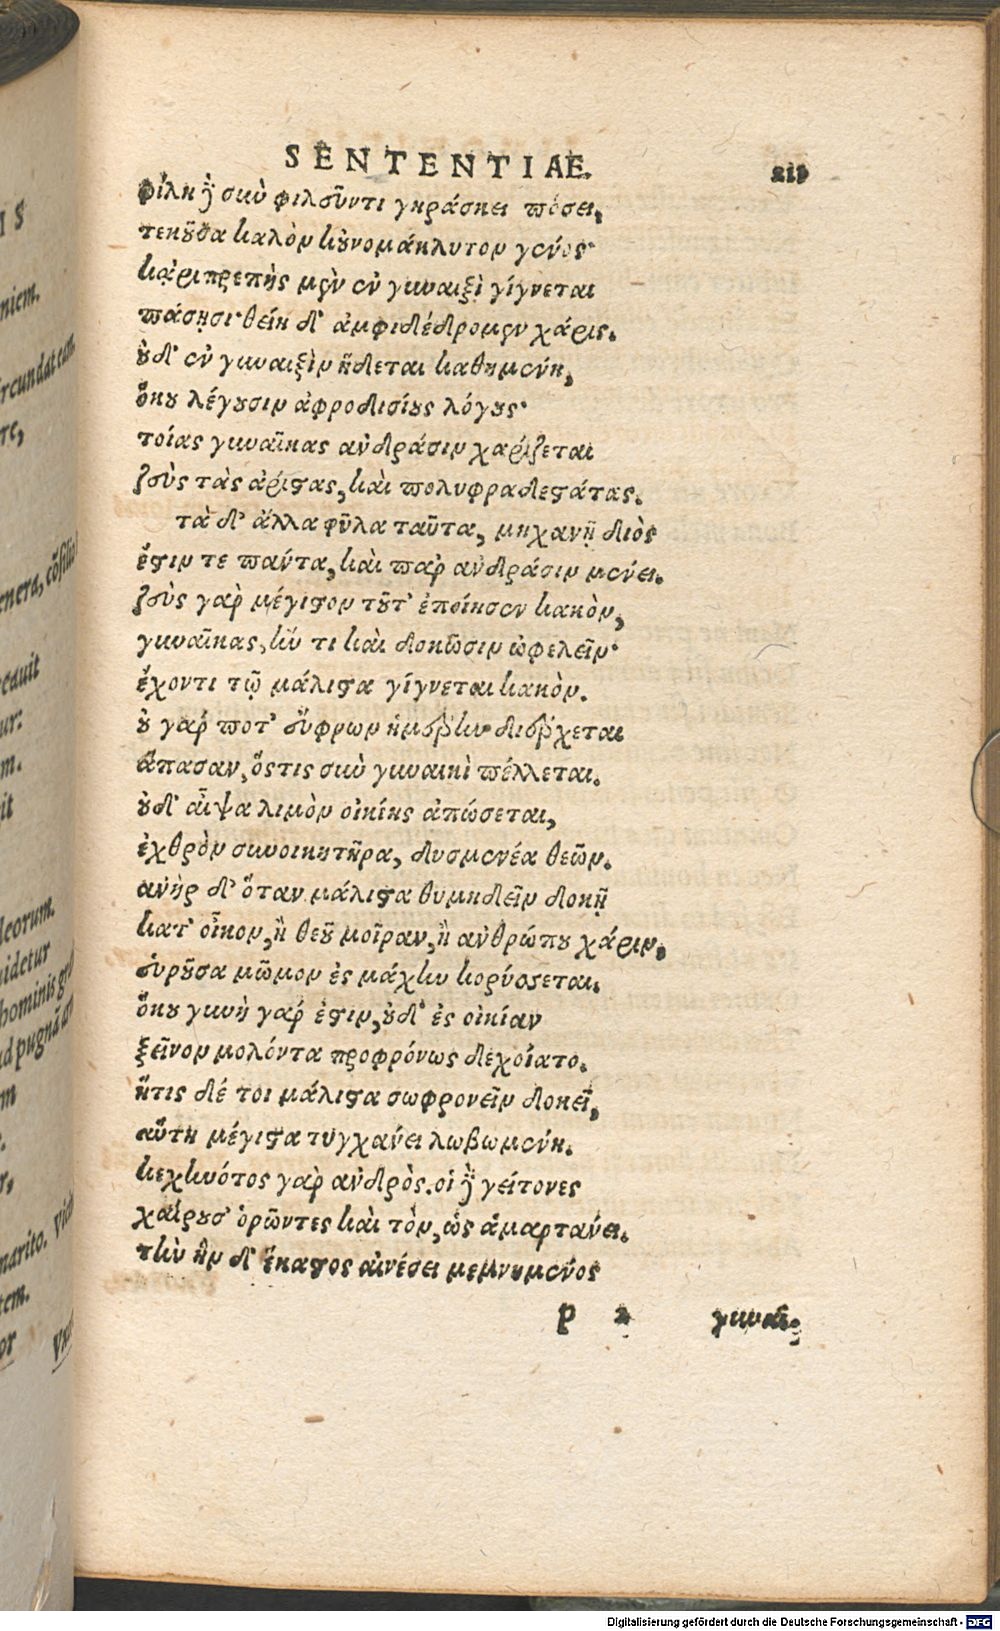 SENTENTIAE.
φίλη δὲ σὺν φιλεῦντι γηράσκει πόσει,
τεκοῦσα καλὸν κοὐνομάκλυτον γένος·
κἀριπρεπὴς μὲν ἐν γυναιξὶ γίγνεται
πάσῃσι· θείη δ' ἀμφιδέδρομεν χάρις.
οὐδ' ἐν γυναιξὶν ἥδεται καθημένη,
ὅκου λέγουσιν ἀφροδισίους λόγους·
τοίας γυναῖκας ἀνδράσιν χαρίζεται
ζεὺς τὰς ἀρίστας, καὶ πολυφραδεστάτας.
τὰ δ' ἄλλα φῦλα ταῦτα, μηχανῇ διὸς
ἔστιν τε πάντα, καὶ παρ ἀνδράσιν μένει.
ζεὺς γὰρ μέγιστον τοῦτ' ἐποίησεν κακὸν,
γυναῖκας, ἤν τι καὶ δοκῶσιν ὠφελεῖν·
ἔχοντι τῷ μάλιστα γίγνεται κακὸν.
οὐ γάρ ποτ' εὔφρων ἡμέρην διέρχεται
ἅπασαν, ὅστις σὺν γυναικὶ πέλλεται.
οὐδ' αἶψα λιμὸν οἰκίης ἀπώσεται,
ἐχθρὸν συνοικητῆρα, δυσμενέα θεῶν.
ἀνὴρ δ' ὅταν μάλιστα θυμηδεῖν δοκῇ
κατ' οἶκον, ἢ θεοῦ μοῖραν, ἢ ἀνθρώπου χάριν,
εὑροῦσα μῶμον ἐς μάχην κορύσσεται.
ὅκου γυνὴ γάρ ἐστιν, οὐδ' ἐς οἰκίαν
ξεῖνον μολόντα προφρόνως δεχοίατο.
ἥτις δέ τοι μάλιστα σωφρονεῖν δοκεῖ,
αὕτη μέγιστα τυγχάνει λωβωμένη.
κεχηνότος γὰρ ἀνδρὸς. οἱ δὲ γείτονες
χαίρουσ' ὁρῶντες καὶ τὸν, ὡς ἁμαρτάνει.
τὴν ἣν δ' ἕκαστος αἰνέσει μεμνημένος
P 2 γυναῖ-
niem.
rcundat eam
re,
enera, cōsilio
ur:
m.
it
deorum.
uidetur
m
r,
marito.
tem.
or
Digitalisierung gefördert durch die Deutsche Forschungsgemeinschaft - DFG